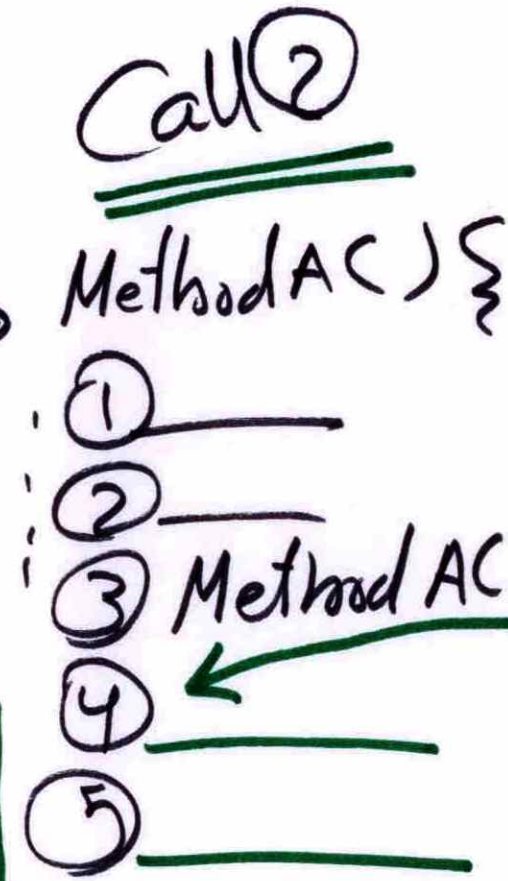 Call ②
MethodA() {
①
②
③ MethodA(
④
⑤